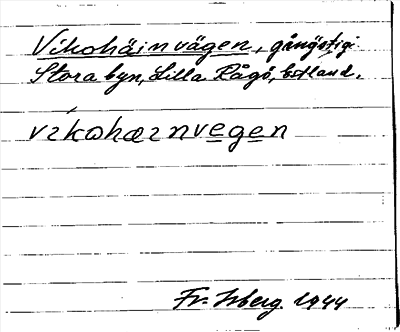 Vikohäinvägen, gångstig i
Stora byn, Lilla Rågö, Estland.
víkohæinvegen
Fr. Isberg 1944